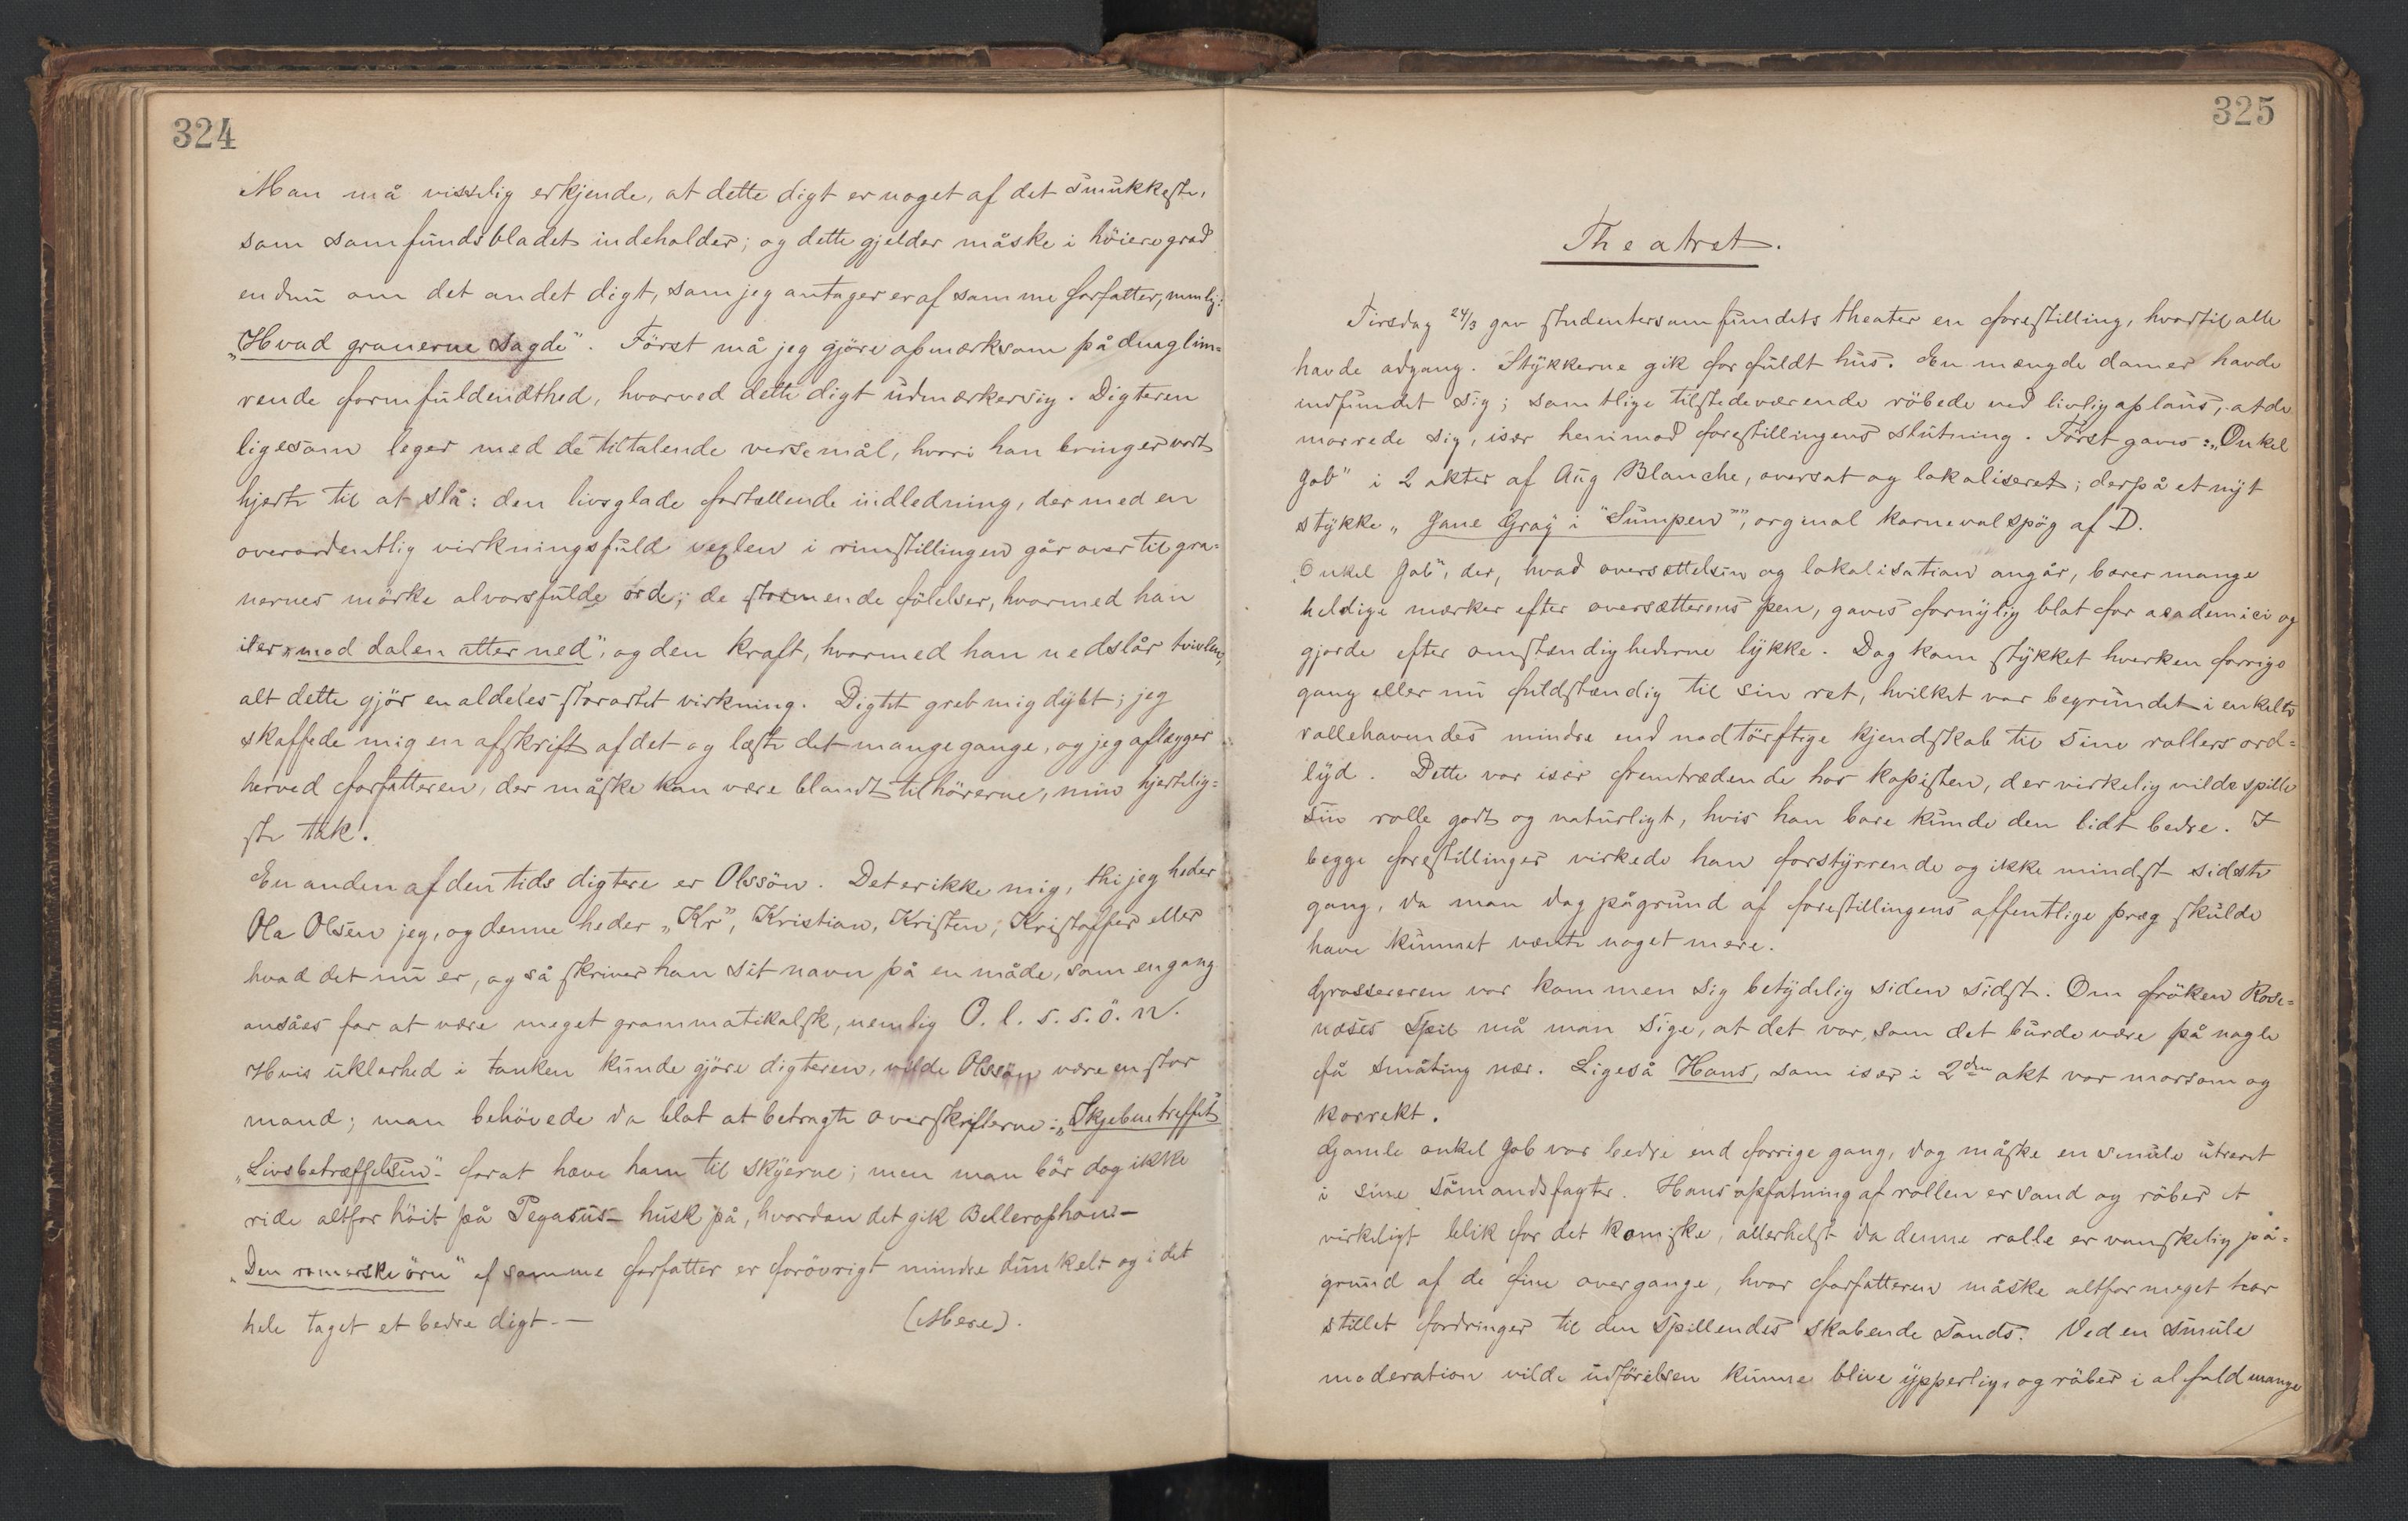 324
Man må visselig erkjende, at dette digt er noget af det smukkeste,
som samfundsbladet indeholder; og dette gjelder måske i höiere grad
endnu om det andet digt, som jeg antager er af samme forfatter, nmlg:
„Hvad granerne sagde". Först må jeg gjöre opmærksom på den glim=
rende formfuldendthed, hvorved dette digt udmærker sig. Digteren
ligesom leger med de tiltalende versemål, hvori han bringer vort
hjerte til at slå: den livsglade fortællende indledning, der med en
overordentlig virkningsfuld vexlen i rimstillingen går over til gra=
nernes mörke alvorsfulde ord; de stormende fölelser, hvormed han
iler „mod dalen atter ned", og den kraft, hvormed han nedslår tvivlen,
alt dette gjör en aldeles storartet virkning. Digtet greb mig dybt; jeg
skaffede mig en afskrift af det og læste det mange gange, og jeg aflægger
herved forfatteren, der måske kan være blandt tilhörerne, min hjertelig=
ste tak!
En anden af den tids digtere er Olssön. Det er ikke mig, thi jeg heder
Ola Olsen jeg, og denne heder „Kr", Kristian, Kristen, Kristoffer eller
hvad det nu er, og så skriver han sit navn på en måde, som engang
ansåes for at være meget grammatikalsk, nemlig O. l. s. s. ö. n.
Hvis uklarhed i tanken kunde gjöre digteren, vilde Olssön være en stor
mand; man behövede da blot at betragte overskrifterne: „Skjebnetræffet"
„Livsbetræffelsen" - forat hæve ham til skyerne; men man bör dog ikke
ride altfor höit på Pegasus - husk på, hvordan det gik Bellerophon -
„Den romerske örn" af samme forfatter er forövrigt mindre dunkelt og i det
hele taget et bedre digt. - (Mere).
325
Theatret.
Tirsdag 24/3 gav studentersamfundets theater en forestilling, hvortil alle
havde adgang. Stykkerne gik for fuldt hus. En mængde damer havde
indfundet sig; samtlige tilstedeværende röbede ved livlig aplaus, at de
morede sig, især henimod forestillingens slutning. Först gaves: „Onkel
Job" i 2 akter af Aug Blanche, oversat og lokaliseret; derpå et nyt
stykke „Jane Gray i "Sumpen"", orginal karnevalspög af D.
„Onkel Job", der, hvad oversættelsen og lokalisation angår, bærer mange
heldige mærker efter oversætterens pen, gaves fornylig blot for academici og
gjorde efter omstændighederne lykke. Dog kom stykket hverken forrige
gang eller nu fuldstændig til sin ret, hvilket var begrundet i enkelte
rollehavendes mindre end nödtörftige kjendskab til sine rollers ord=
lyd. Dette var især fremtrædende hos kopisten, der virkelig vilde spille
sin rolle godt og naturligt, hvis han bare kunde den lidt bedre. I
begge forestillinger virkede han forstyrrende og ikke mindst sidste
gang, da man dog pågrund af forestillingens offentlige præg skulde
have kunnet vente noget mere.
Grossereren var kommen sig betydelig siden sidst. Om fröken Rose=
næses spil må man sige, at det var, som det burde være på nogle
få småting nær. Ligeså Hans, som især i 2den akt var morsom og
korrekt.
Gamle onkel Job var bedre end forrige gang, dog måske en smule utreret
i sine sömandsfagter. Hans opfatning af rollen er sand og röber et
virkeligt blik for det komiske, allerhelst da denne rolle er vanskelig på=
grund af de fine overgange, hvor forfatteren måske altfor meget har
stillet fordringer til den spillendes skabende sands. Ved en smule
moderation vilde udförelsen kunne blive ypperlig, og röber i alfald mange